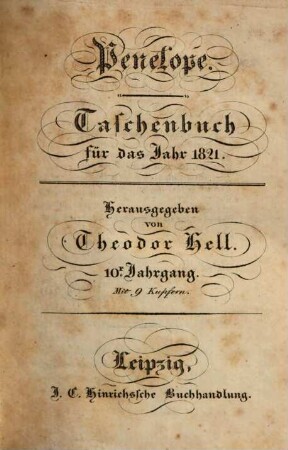 Penelope.
Taschenbuch
für das Jahr 1821.
Herausgegeben
von
Theodor Hell.
10r Jahrgang.
Mit 9 Kupfern.
Leipzig,
J. C. Hinrichssche Buchhandlung.